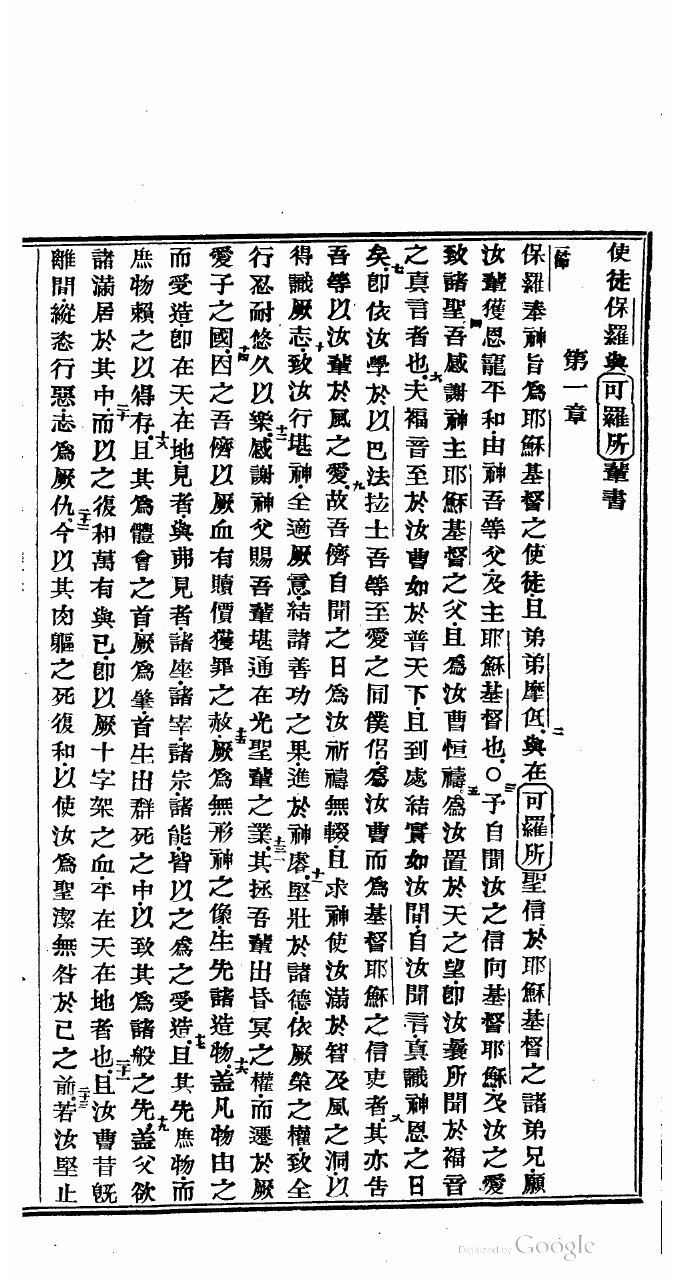 使徒保羅與可羅所輩書
第一章
一節保羅奉神旨爲耶穌基督之使徒且弟弟摩氐二與在可羅所聖信於耶穌基督之諸弟兄願
汝輩獲恩寵平和由神吾等父及主耶穌基督也○三予自聞汝之信向基督耶穌及汝之愛
致諸聖四吾感謝神主耶穌基督之父且爲汝曹恒禱五爲汝置於天之望卽汝曩所聞於福音
之真言者也六夫福音至於汝曹如於普天下且到處結實如汝間自汝聞言真識神恩之日
矣七卽依汝學於以巴法拉士吾等至愛之同僕侶爲汝曹而爲基督耶穌之信吏者八其亦告
吾等以汝輩於風之愛九故吾儕自聞之日爲汝祈禱無輟且求神使汝滿於智及風之洞以
得識厥志十致汝行堪神全適厥意結諸善功之果進於神睿十一堅壯於諸德依厥榮之權致全
行忍耐悠久以樂十二感謝神父賜吾輩堪通在光聖輩之業十三其拯吾輩出昏冥之權而遷於厥
愛子之國十四因之吾儕以厥血有贖價獲罪之赦十五厥爲無形神之像生先諸造物十六蓋凡物由之
而受造卽在天在地見者與弗見者諸座諸宰諸宗諸能皆以之爲之受造十七且其先庶物而
庶物賴之以得存十八且其爲體會之首厥爲肇首生出群死之中以致其爲諸般之先十九蓋父欲
諸滿居於其中二十而以之復和萬有與己卽以厥十字架之血平在天在地者也二十一且汝曹昔旣
離間縱恣行惡志爲厥仇二十二今以其肉軀之死復和以使汝爲聖潔無咎於己之前二十三若汝堅止
Digitized by Google